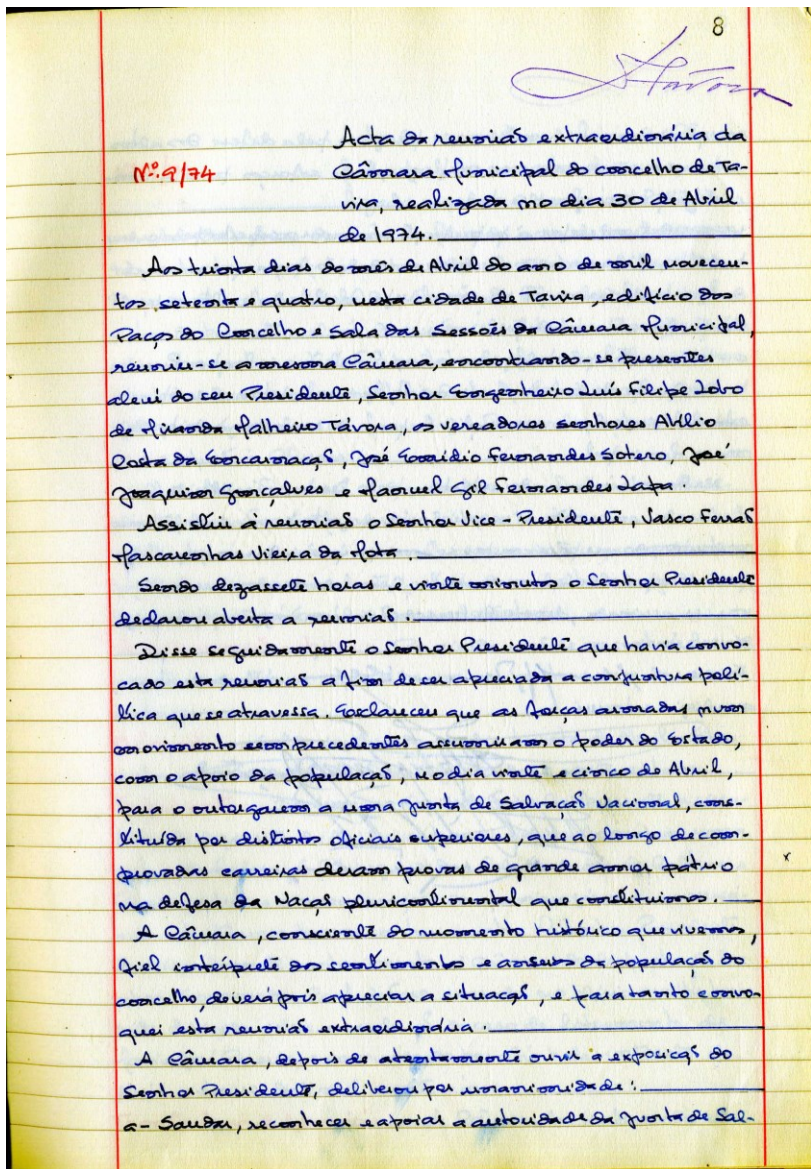 8
Távora
Acta da reunião extraordinária da
Nº. 9/74
Câmara Municipal do concelho de Ta-
vira, realizada no dia 30 de Abril
de 1974.
Aos trinta dias do mês de Abril do ano de mil novecen-
tos setenta e quatro, nesta cidade de Tavira, edifício dos
Paços do Concelho e Sala das Sessões da Câmara Municipal,
reuniu-se a mesma Câmara, encontrando-se presentes
além do seu Presidente, Senhor Engenheiro Luís Filipe Lobo
de Miranda Malheiro Távora, os vereadores senhores Abílio
Costa da Encarnação, José Emídio Fernandes Sotero, José
Joaquim Gonçalves e Manuel Gil Fernandes Lapa.
Assistiu à reunião o Senhor Vice-Presidente, Vasco Ferrão
Mascarenhas Vieira da Mota.
Sendo dezassete horas e vinte minutos o Senhor Presidente
declarou aberta a reunião.
Disse seguidamente o Senhor Presidente que havia convo-
cado esta reunião a fim de ser apreciada a conjuntura polí-
tica que se atravessa. Esclareceu que as forças armadas num
movimento sem precedentes assumiram o poder do Estado,
com o apoio da população, no dia vinte e cinco de Abril,
para o outorgarem a uma Junta de Salvação Nacional, cons-
tituída por distintos oficiais superiores, que ao longo de com-
provadas carreiras deram provas de grande amor pátrio
na defesa da Nação pluricontinental que constituimos.
A Câmara, consciente do momento histórico que vivemos,
fiel intérprete dos sentimentos e anseios da população do
concelho, deverá pois apreciar a situação, e para tanto convo-
quei esta reunião extraordinária.
A Câmara, depois de atentamente ouvir a exposição do
Senhor Presidente, deliberou por unanimidade:
a- Saudar, reconhecer e apoiar a autoridade da Junta de Sal-